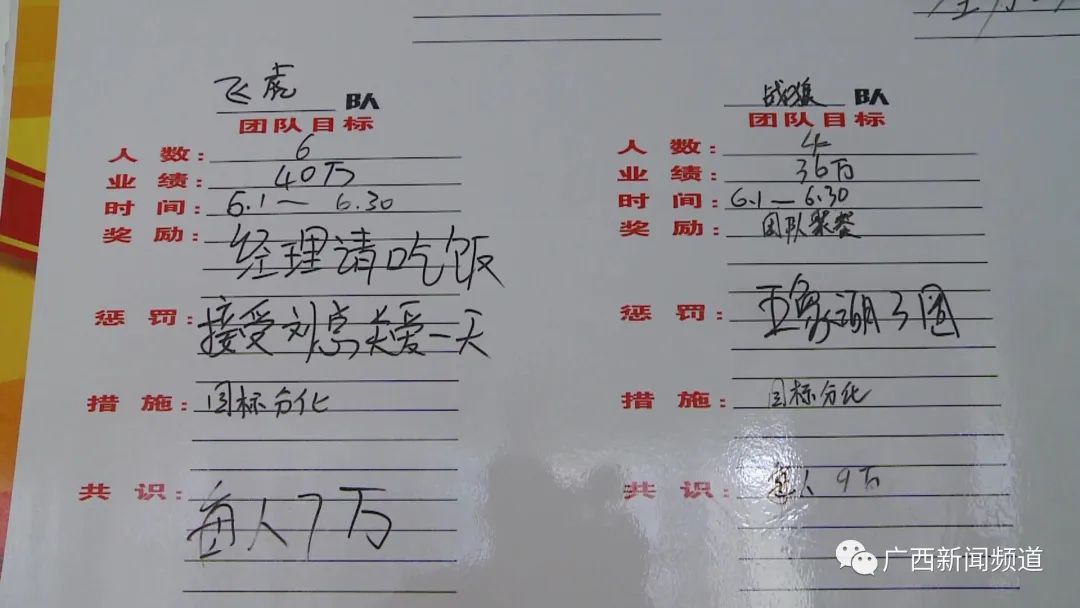 飞虎队
团队目标
人数：6
业绩：40万
时间：6.1— 6.30
奖励：经理请吃饭
惩罚：接受刘总关爱一天
措施：目标分化
共识：每人7万
战狼队
团队目标
人数：4
业绩：36万
时间：6.1— 6.30
奖励：团队聚餐
惩罚：湖3圈
措施：目标分化
共识：每人9万
广西新闻频道